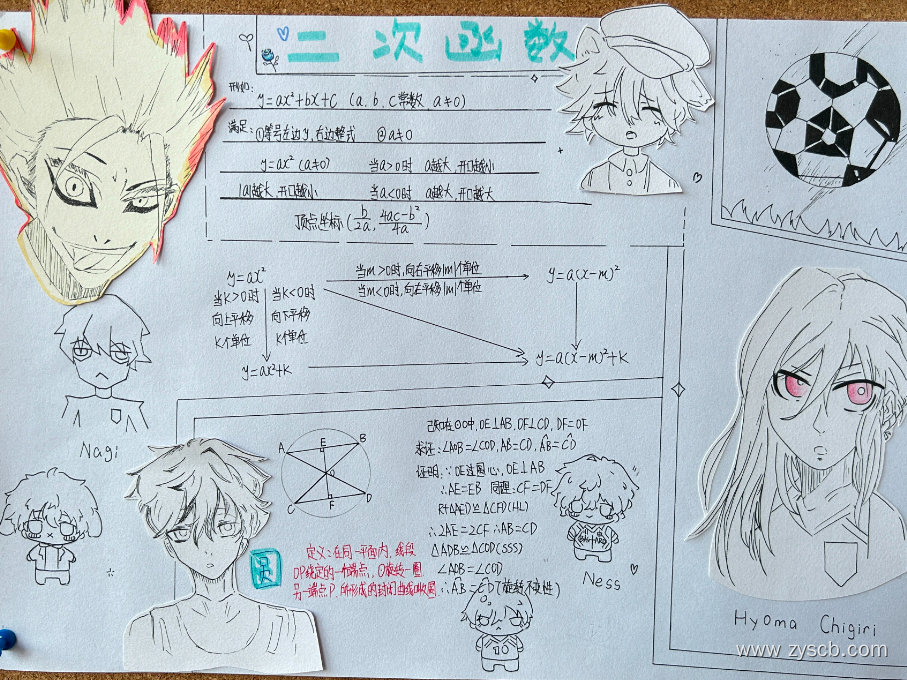 二次函数
形如: y=ax²+bx+c (a、b、c常数 a≠0)
满足: ①等号左边y,右边整式 ②a≠0
y=ax² (a≠0) 当a>0时 a越大,开口越小
|a|越大,开口越小 当a<0时 a越大,开口越大
顶点坐标(b/2a, 4ac-b²/4a)
y=ax²
当m>0时,向右平移|m|个单位
当m<0时,向左平移|m|个单位
y=a(x-m)²
当K>0时
向上平移
K个单位
当K<0时
向下平移
K个单位
y=ax²+K
y=a(x-m)²+K
Nagi
A
E
B
O
C
F
D
已知在⊙O中, OE⊥AB, OF⊥CD, OE=OF
求证: ∠AOB=∠COD, AB=CD, AB=CD
证明: ∵OE过圆心, OE⊥AB
∴AE=EB 同理: CF=DF
∴2AE=2CF ∴AB=CD
(SSS)
∠AOB=∠COD
∴AB=CD(旋转不变性)
圆
定义: 在同一平面内, 线段
OP绕定的一个端点, O旋转一圈
另一端点P, 所形成的封闭曲线叫圆
Ness
10
Hyoma Chigiri
www.zyscb.com